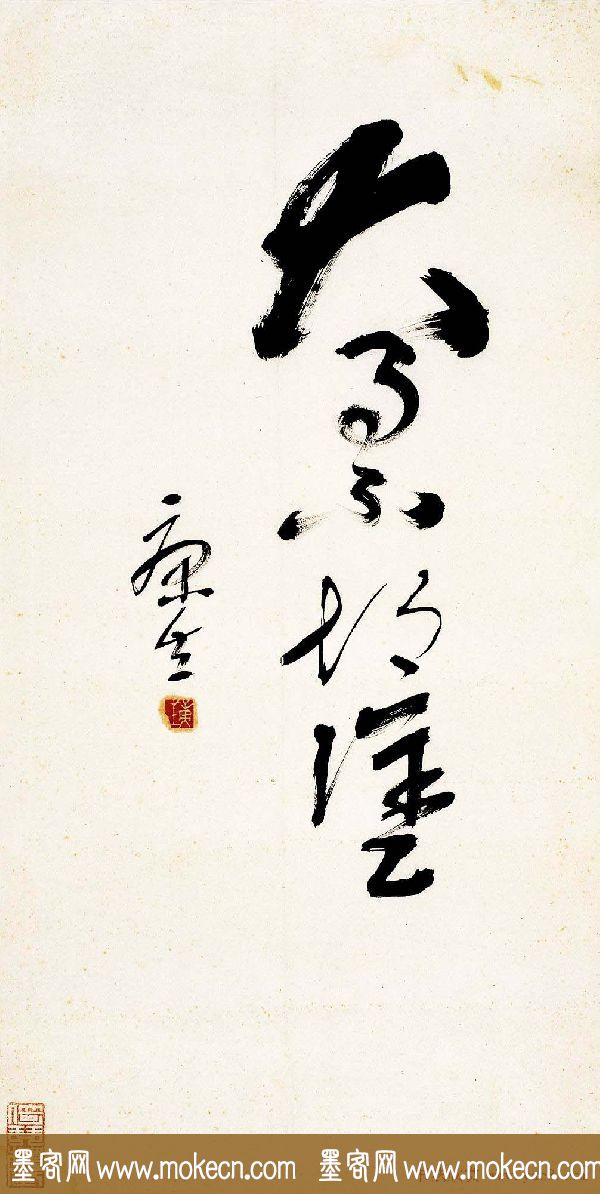 大事不糊塗
康生
墨客网 www.mokecn.com 墨客网 www.mokecn.com